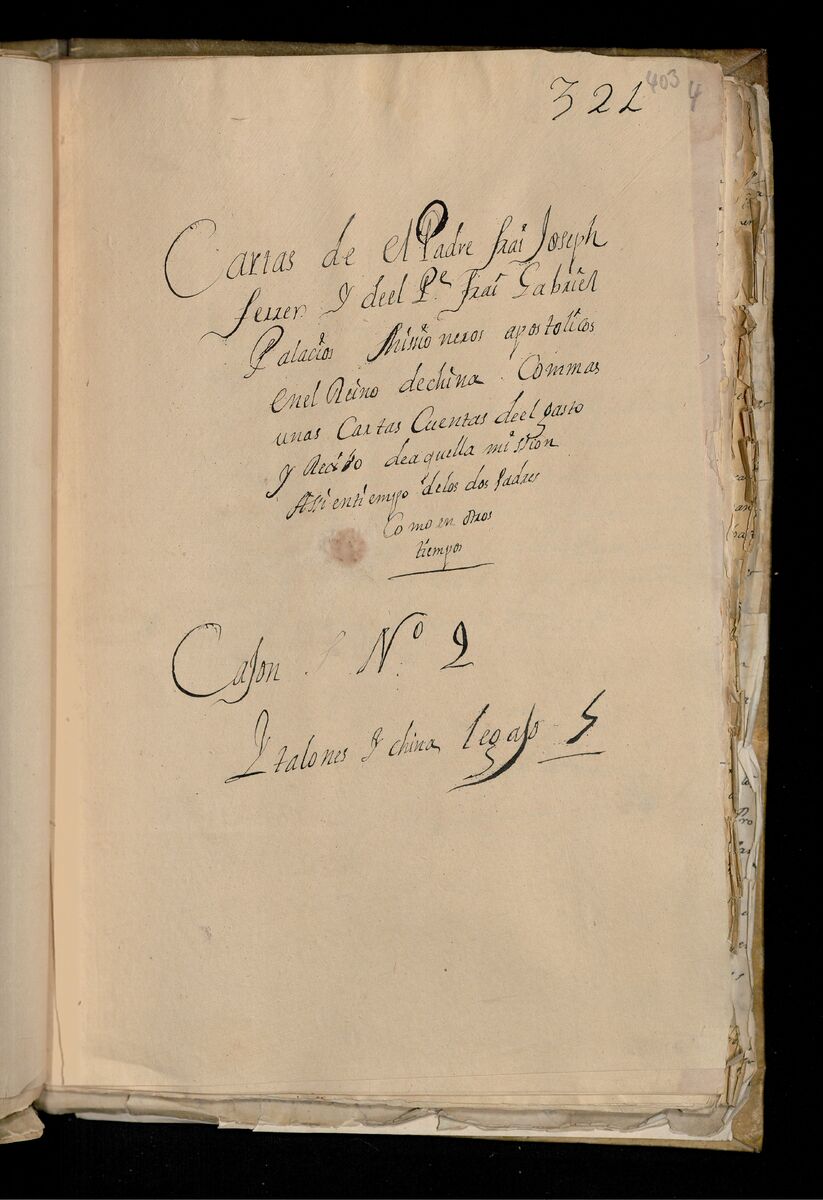 321
403
4
Cartas de el Padre frai Joseph
ferrer Y deel Pe Frai Gabriel
Palacios Misioneros apostolicos
enel Reino dechina Commas
unas Cartas Cuentas deel gasto
y Recibo deaquella mission
Assi entiempo delos dos Padres
Como en otros
tiempos
Cajon No 2
Ytalones Y china legajo 5